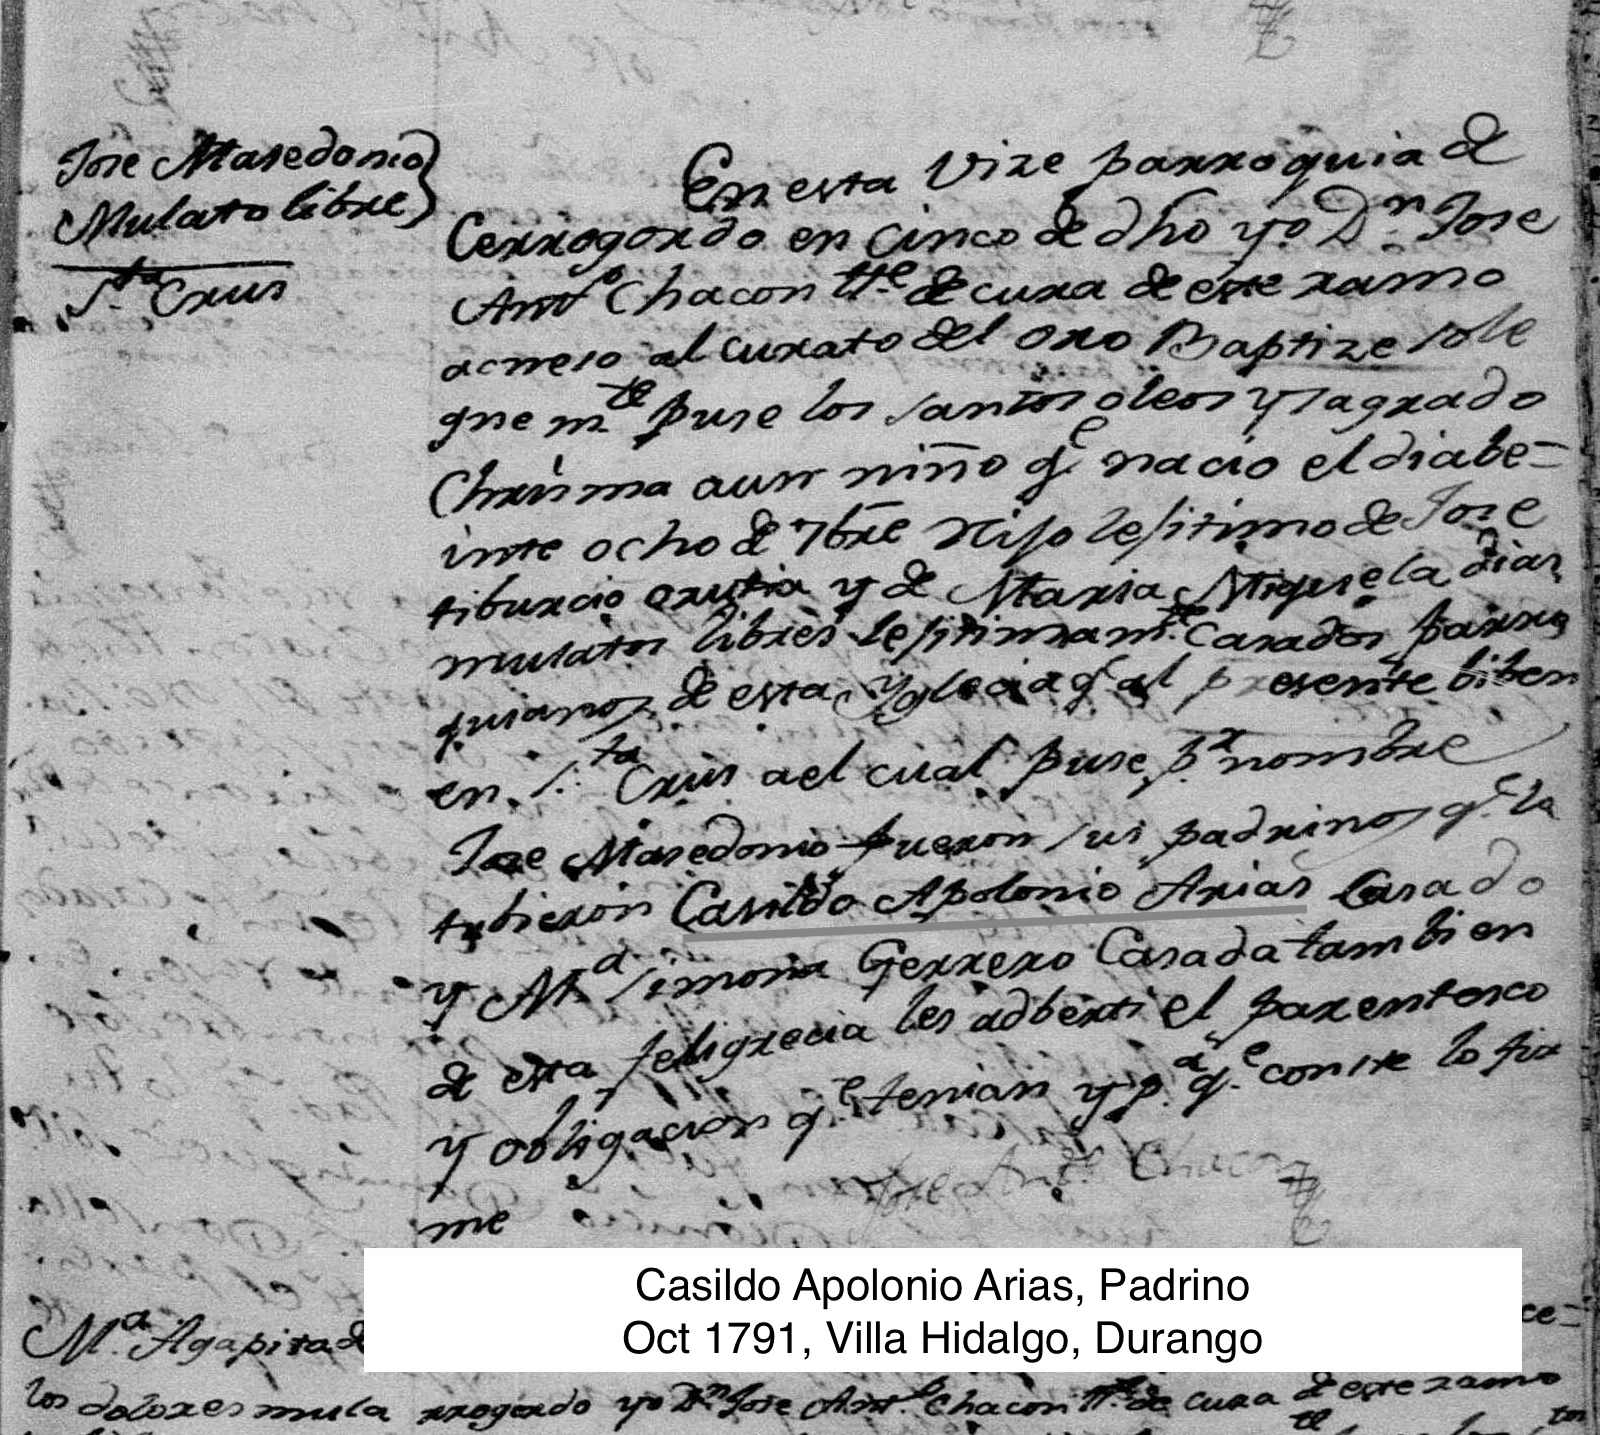 Jose Masedonio
Mulato libre
S.ta Crus
En esta Vize parroquia de
Cerrogordo en cinco de dho yo D.n Jose
Ant.o Chacon tte. de cura de este ramo
acneso al curato del oro Baptize sole
gne m.te puse los santos oleos y sagrado
Chrisma aun niño q.e nacio el dia be=
inte ocho de 7bre Hijo lesitimo de Jose
tiburcio orutia y de Maria Miquela dias
mulatos libres lesitimam.te Casados parro
quianos de esta Yglecia q.e al presente biben
en S.ta Crus a el cual puse p.r nombre
Jose Masedonio fueron sus padrinos q.e la
tubieron Casildo Apolonio Arias Casado
y M.a Simona Gerrero Casada tambien
de esta feligrecia les adberti el parentesco
y obligacion q.e tenian y p.a q.e conste lo fir
me
Jose Ant.o Chacon
Casildo Apolonio Arias, Padrino
Oct 1791, Villa Hidalgo, Durango
M.a Agapita de
ce=
los dolores mula
rrogordo yo D.n Jose Ant.o Chacon tte. de cura de este ramo